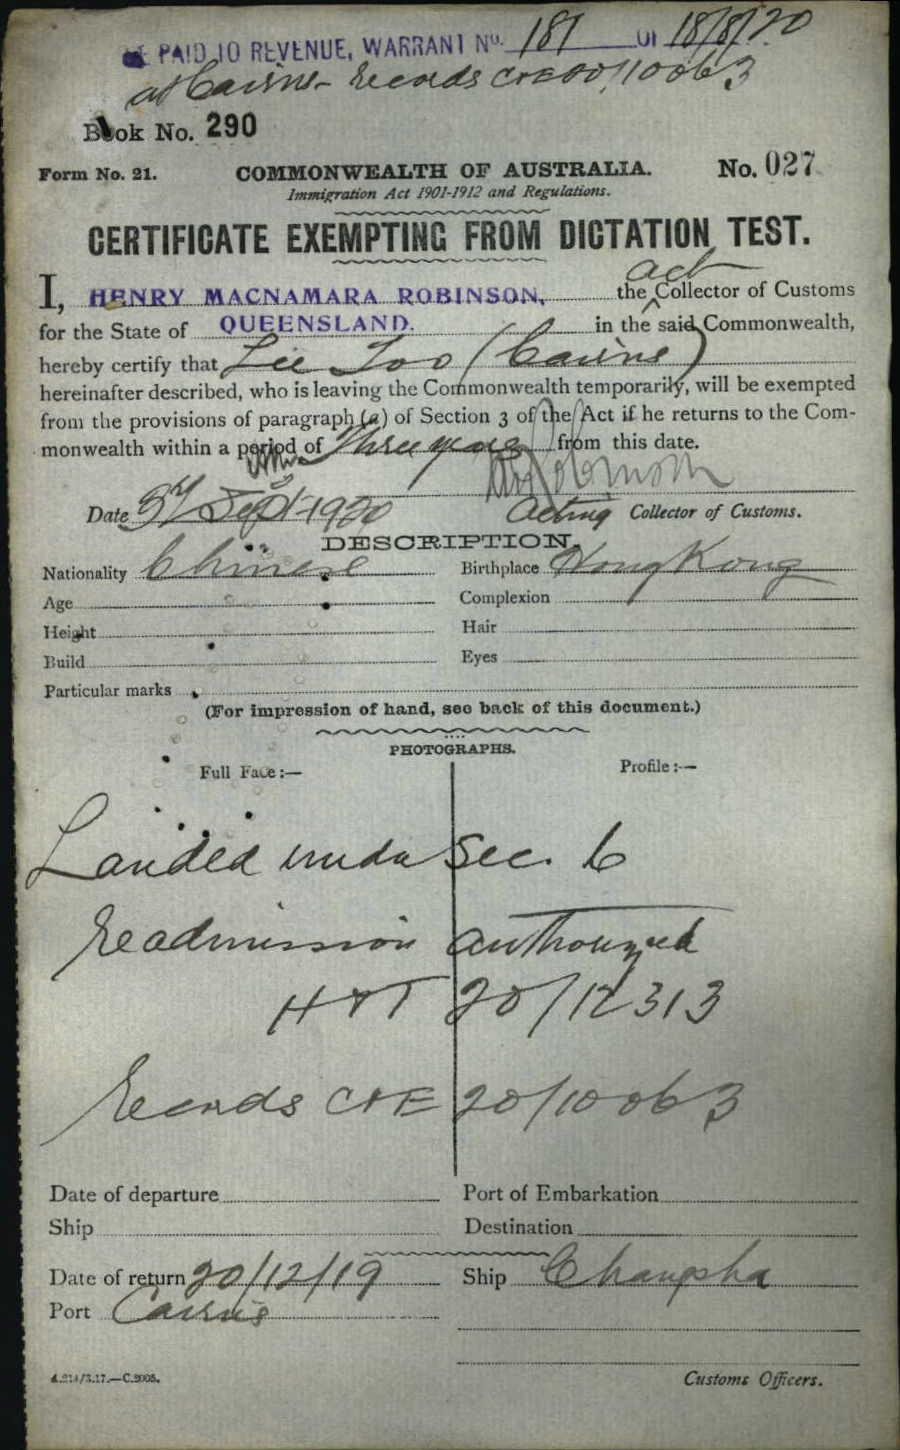 £1 PAID TO REVENUE, WARRANT No. 181 OF 18/8/20
at Cairns - Records C&E 20/10063
Book No. 290
Form No. 21. COMMONWEALTH OF AUSTRALIA. No. 027
Immigration Act 1901-1912 and Regulations.
CERTIFICATE EXEMPTING FROM DICTATION TEST.
act
I, HENRY MACNAMARA ROBINSON, the Collector of Customs
for the State of QUEENSLAND. in the said Commonwealth,
hereby certify that Lee Loo (Cairns)
hereinafter described, who is leaving the Commonwealth temporarily, will be exempted
from the provisions of paragraph (a) of Section 3 of the Act if he returns to the Com-
monwealth within a period of Three years from this date.
Date Sept 1920 Acting Collector of Customs.
DESCRIPTION.
Nationality Chinese Birthplace Hong Kong
Age Complexion
Height Hair
Build Eyes
Particular marks
(For impression of hand, see back of this document.)
PHOTOGRAPHS.
Full Face:— Profile:—
Landed under Sec. 6
Readmission authorized
H&T 20/12313
Records C&E 20/10063
Date of departure Port of Embarkation
Ship Destination
Date of return 20/12/19 Ship Changsha
Port Cairns
A.214/3.17.—C.2005. Customs Officers.